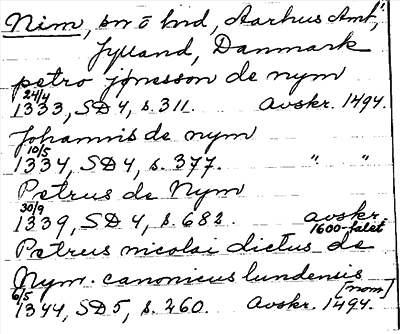 Nim, sn o hd, Aarhus Amt,
Jylland, Danmark
petro jonesson de nym
24/4
1333, SD 4, s. 311. Avskr. 1494.
Johannis de nym
10/5
1334, SD 4, s. 377. " "
Petrus de Nym
30/9
1339, SD 4, s. 682. avskr.
1600-talet
Petrus nicolai dictus de
Nym. canonicus lundensis
6/5 [nom]
1344, SD 5, s. 260. Avskr. 1494.